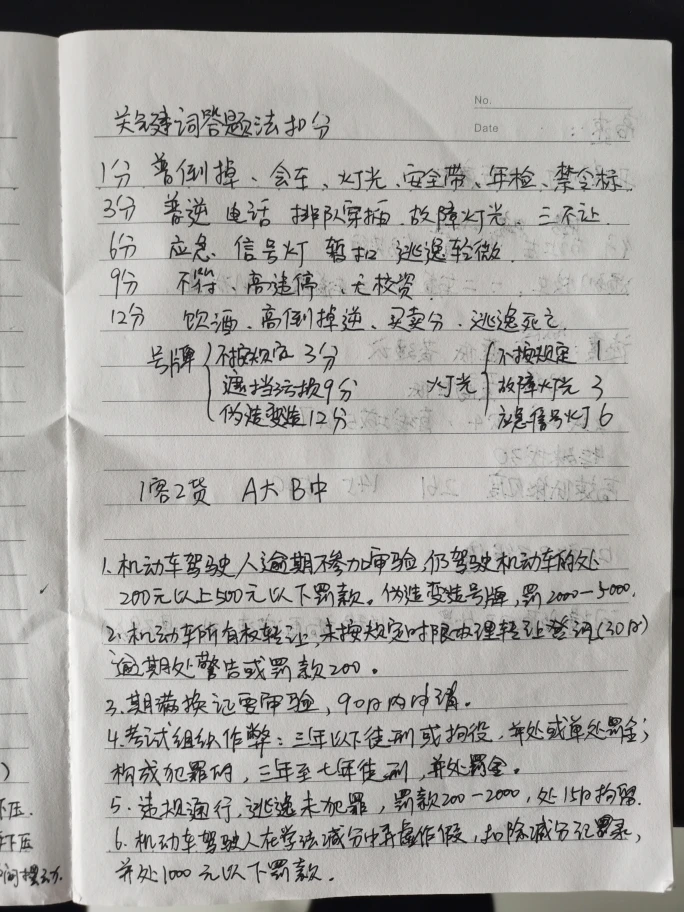 No.
Date
关键词答题法扣分
1分 普倒掉、会车、灯光、安全带、年检、禁令标
3分 普逆 电话 排队穿插 故障灯光 三不让
6分 应急 信号灯 暂扣 逃逸轻微
9分 不符、高速停、无校资
12分 饮酒、高倒掉逆、买卖分、逃逸死亡
号牌 不按规定 3分
遮挡污损9分
伪造变造12分
灯光 不按规定 1
故障灯光 3
应急信号灯 6
1客2货 A大B中
1.机动车驾驶人逾期不参加审验,仍驾驶机动车的处
200元以上500元以下罚款。伪造变造号牌,罚2000-5000.
2.机动车所有权转让,未按规定时限办理转让登记(30日)
逾期处警告或罚款200。
3.期满换证要审验,90日内申请。
4.考试组织作弊:三年以下徒刑或拘役,并处或单处罚金;
构成犯罪的,三年至七年徒刑,并处罚金。
5.违规通行,逃逸未犯罪,罚款200-2000,处15日拘留.
6.机动车驾驶人在学法减分中弄虚作假,扣除减分记录,
并处1000元以下罚款.
下压.
下压